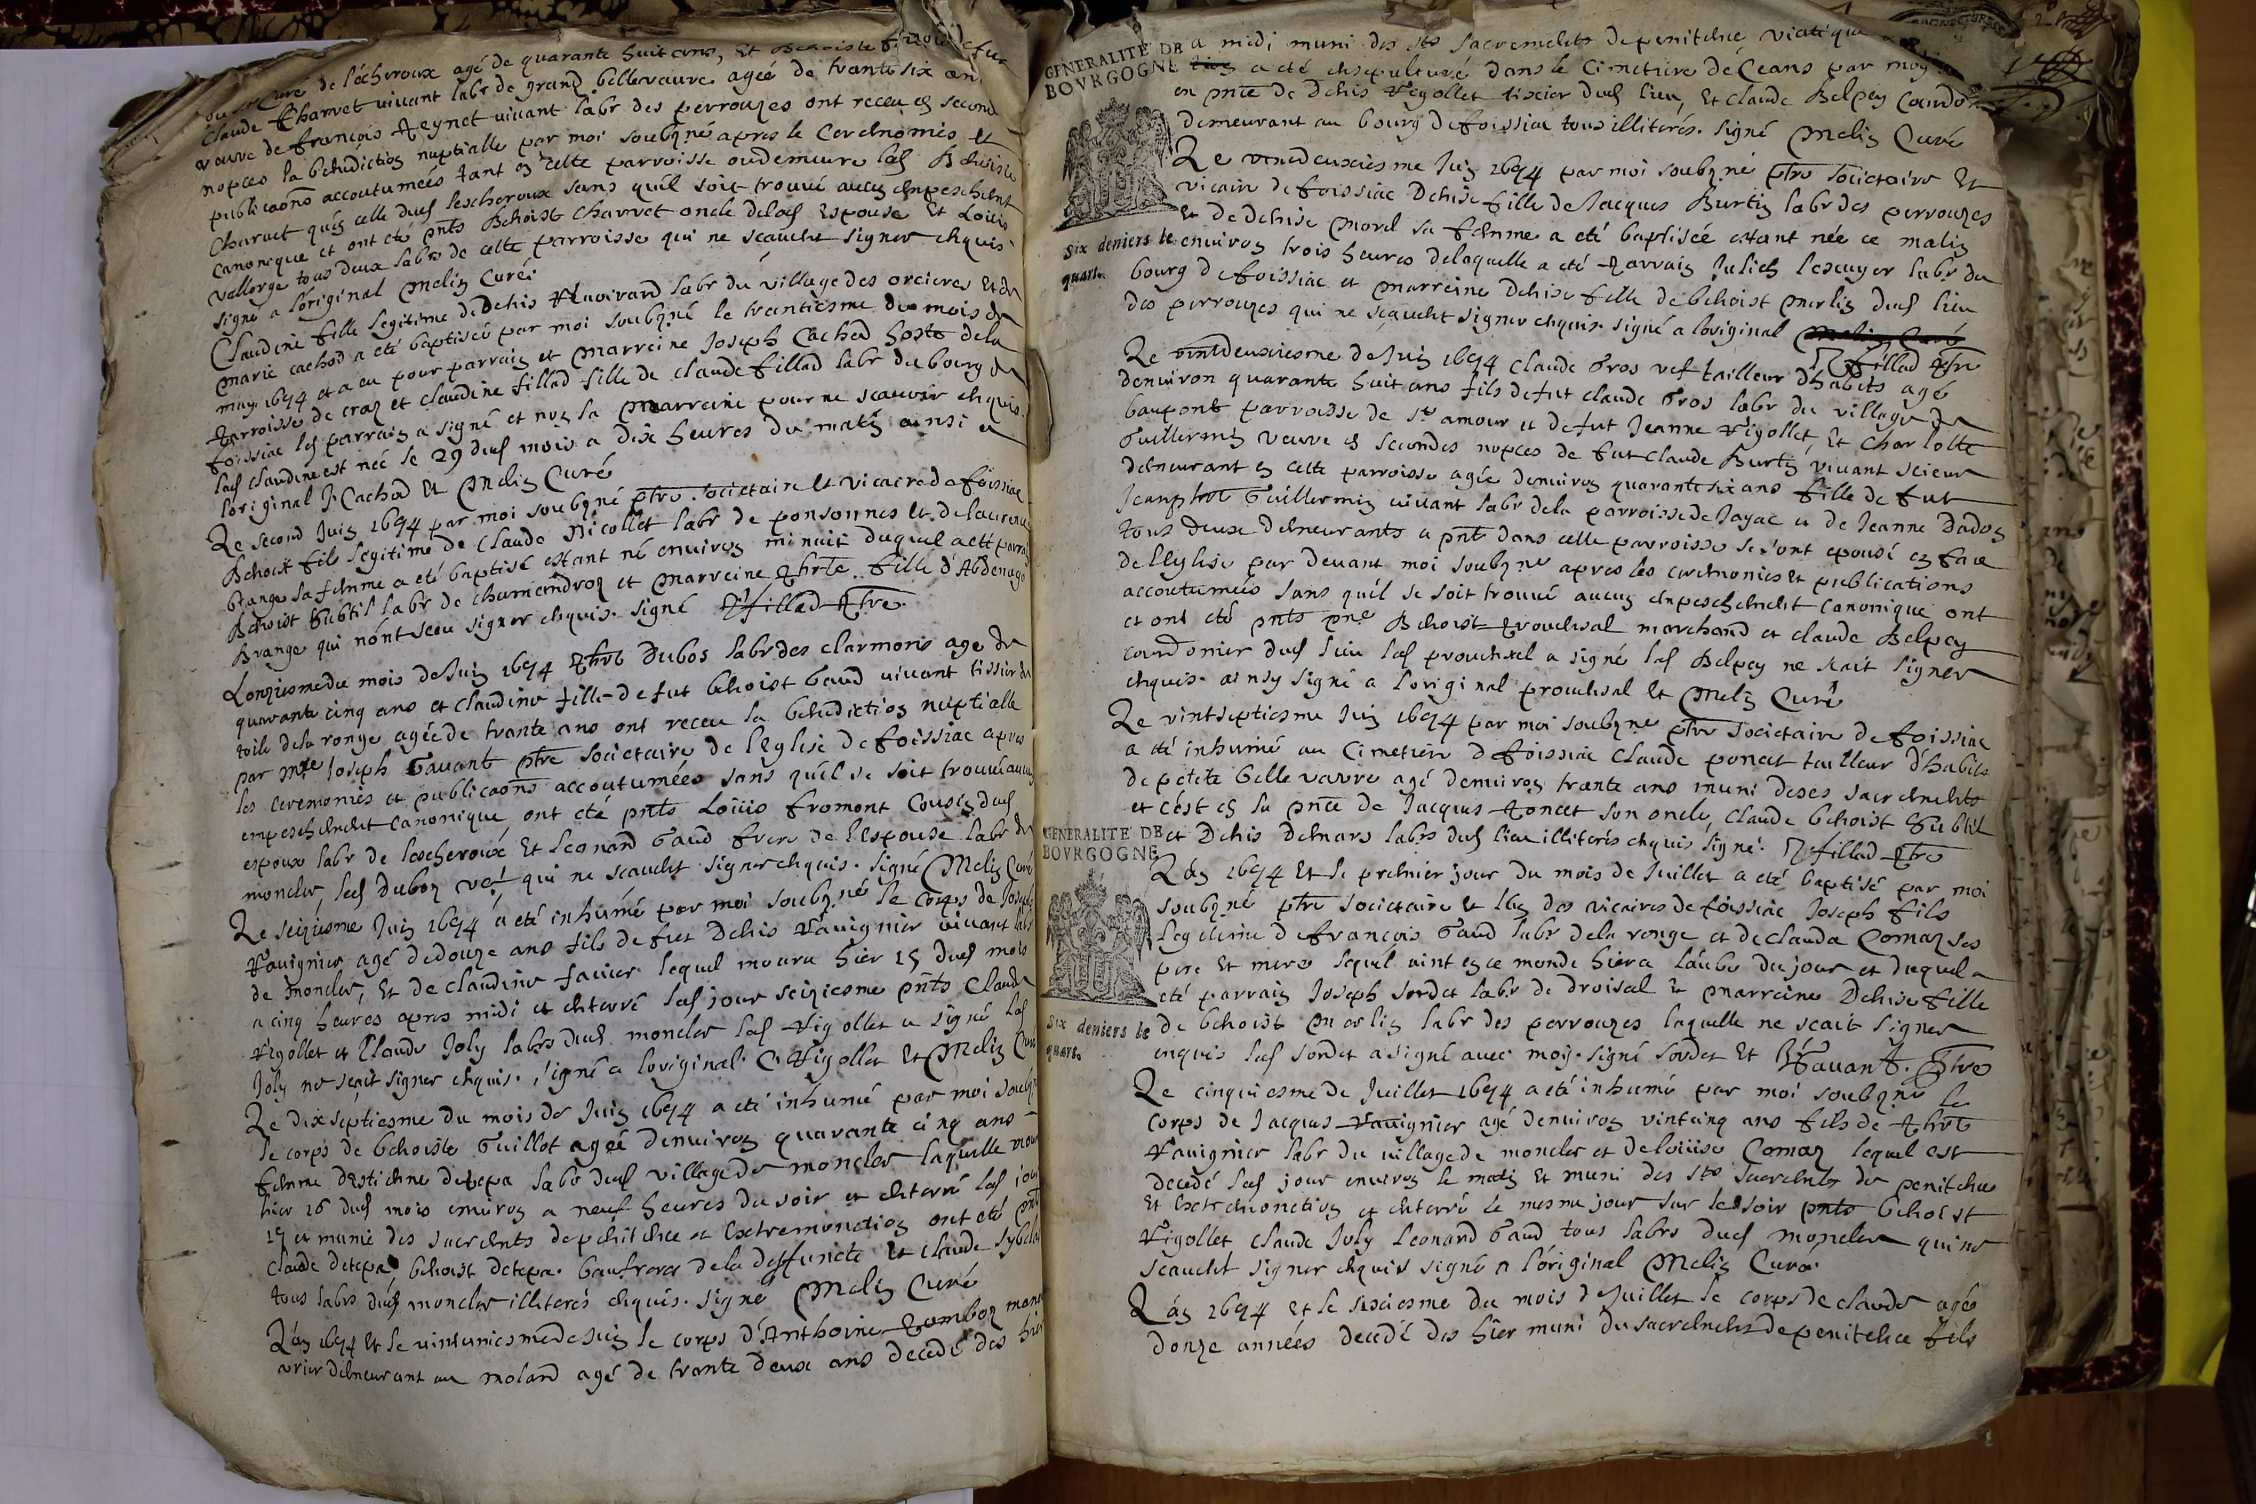 Curé de l'écheroux agé de quarante huit ans, et Benoiste
Claude Charvet vivant labr de grand bellevavre ageé de trante six ans
veuve de françois Reynet vivant labr des perrouzes ont receu en second
nopces la benediction nuptialle par moi soubzné apres le Ceremonies et
publicaons accoutumées tant en cette parroisse ou demeure lad Benoiste
Charvet qu'en celle dud lescheroux sans qu'il soit trouvé aucun enpeschent
canonique et ont eté pnts Benoist Charvet oncle delad Espouse et Loüis
vellerge tous deux labrs de cette parroisse qui ne scauent signer enquis
signé a l'original Melin Curé.
Claudine fille legitime de Denis Vlavirard labr du village des orcieres et de
marie cachod a eté baptiseé par moi soubzné le trantiesme du mois de
may 1694 et a eu pour parrain et marreine Joseph Cachod hoste dela
parroisse de craz et claudine fillad fille de claude fillad labr du bourg de
foissiac led parrain a signé et non la marreine pour ne scavoir enquis.
lad claudine est née le 29 dud mois a dix heures du matin ainsi a
l'original J. Cachod et Melin Curé
Le second Juin 1694 par moi soubzné ptre societaire et vicaire de foissiac
Benoist fils legitime de Claude Nicollet labr de ponsonnes et de laurence
brange sa femme a eté baptisé estant né environ minuit duquel a eté parrain
Benoist Subtil labr de chamandroz et marreine phrte fille d'Abdenago
Brange qui n'ont sceu signer enquis. signé fillad ptre.
L'onziesme du mois de Juin 1694 phrt Dubos labr des clarmoris age de
quarante cinq ans et claudine fille de fut benoist baud vivant tissier de
toile dela ronge agée de trante ans ont receu la benediction nuptialle
par Mre Joseph Gavant ptre societaire de l'Eglise de foissiac apres
les ceremonies et publicaons accoutumées sans qu'il se soit trouvé aucun
empeschement canonique, ont eté pnts Loüis fromont Cousin dud
espoux labr de lescheroux et Leonard Gaud frere de l'Espouse labr de
moncler, led Dubos vef qui ne scauent signer enquis. signé Melin Curé
Le seiziesme Juin 1694 a eté inhumé par moi soubzné le corps de Joseph
Vauignier agé de douze ans fils de fut Denis Vauignier vivant labr
de moncler, et de claudine favier lequel mourut hier 15 dud mois
a cinq heures apres midi et enterré led jour seiziesme pnts Claude
Vigollet et Claude Joly labrs dud moncler led Vigollet a signé led
Joly ne scait signer enquis. signé a l'original C. Vigollet et Melin Curé
Le dix septiesme du mois de Juin 1694 a eté inhumé par moi soubzné
le corps de benoiste Guillot ageé d'environ quarante cinq ans
femme d'Estienne detepa labr dud village de moncler laquelle mourut
hier 16 dud mois environ a neuf heures du soir et enterré led jour
17 et munie des sacrements de penitence et extremonction ont eté pnts
claude detepa benoist detepa. beaufreres dela deffuncte et claude
tous labrs dud moncler illiterés enquis. signé Melin Curé
L'an 1694 et le vintuniesme de Juin le corps d'Anthoine pombon
demeurant au molard agé de trante deux ans decedé des hier
GENERALITE DE
BOVRGOGNE
a midi muni des sts sacrements de penitence viatique
a eté ensepulturé dans le Cimetiere de Ceans par moy
en pnce de Denis Vigollet tixier dud lieu, et claude Belpey Courdon
demeurant au bourg de foissiac tous illiterés. signé Melin Curé
Le vintdeuxiesme Juin 1694 par moi soubzné ptre societaire et
vicaire de foissiac Denise fille de Jacques Burtin labr des perrouzes
et de denise morel sa femme a eté baptiseé estant née ce matin
environ trois heures de laquelle a eté parrain Julien lescuyer labr du
Six deniers le
quart.
bourg de foissiac et marreine denise fille de benoist merlin dud lieu
des perrouzes qui ne scauent signer enquis. signé a l'original
fillad ptre
Le vintdeuxiesme de Juin 1694 Claude Gros vef tailleur d'habits agé
d'environ quarante huit ans fils de fut claude Gros labr du village de
baupont parroisse de st amour et de fut Jeanne Vigollet, et charlotte
Guillermin veuve en secondes nopces de fut claude Burtin vivant scieur
demeurant en cette parroisse agée d'environ quarante six ans fille de fut
Jean phrt Guillermin vivant labr dela parroisse de Jayac et de Jeanne Dadon
tous deux demeurants a pnt dans cette parroisse se sont epousé en face
de l'Eglise par devant moi soubzné apres les ceremonies et publications
accoutumées sans qu'il se soit trouvé aucun enpeschement canonique ont
et ont eté pnts Benoist prouhesal marchand et claude Belpey
courdonier dud lieu led prouhesal a signé led Belpey ne scait signer
enquis. ainsy signé a l'original prouhesal et Melin Curé
Le vintseptiesme Juin 1694 par moi soubzné ptre societaire de foissiac
a eté inhumé au cimetiere de foissiac Claude poncet tailleur d'habits
de petite belle vavre agé d'environ trante ans muni de ses sacrements
et c'est en la pnce de Jacques poncet son oncle, claude benoist Subtil
et Denis demars labrs dud lieu illiterés enquis signé. fillad ptre
GENERALITE DE
BOVRGOGNE
L'an 1694 et le premier jour du mois de Juillet a eté baptisé par moi
soubzné ptre societaire et l'un des vicaires de foissiac Joseph fils
legitime de françois Gaud labr dela ronge et de clauda Comaz ses
pere et mere lequel vint en ce monde hier a l'aube du jour et duquel a
eté parrain Joseph sordet labr de droisal et marreine denise fille
Six deniers le
quart.
de benoist merlin labr des perrouzes laquelle ne scait signer
enquis led sordet a signé avec moy. signé sordet et Gavant. ptre
Le cinquiesme de Juillet 1694 a eté inhumé par moi soubzné le
corps de Jacques Vauignier agé d'environ vintcinq ans fils de phrt
Vauignier labr du village de moncler et de loüise Comaz lequel est
decedé led jour environ le matin et muni des sts sacrements de penitence
et extremonction et enterré le mesme jour sur le soir pnts benoist
Vigollet claude Joly Leonard Gaud tous labrs dud moncler qui ne
scauent signer enquis signé a l'original Melin Curé.
L'an 1694 et le sixiesme du mois de Juillet le corps de claude agés
donze années decedé des hier muni du sacrement de penitence fils